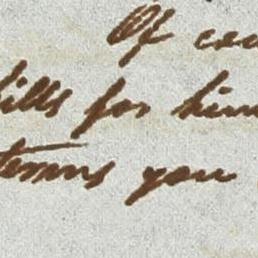 Of cou
bills for him
terms you